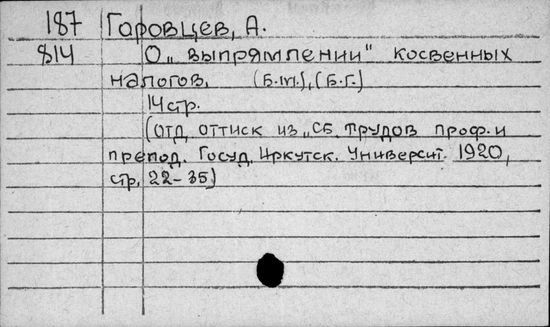 187 Горовцев, А.
814 О „выпрямлении" косвенных
налогов. (Б.м.), (Б.г.)
14 стр.
(отд. оттиск из „Сб. трудов проф. и
препод. Госуд. Иркутск. Университ. 1920,
стр. 22-35)